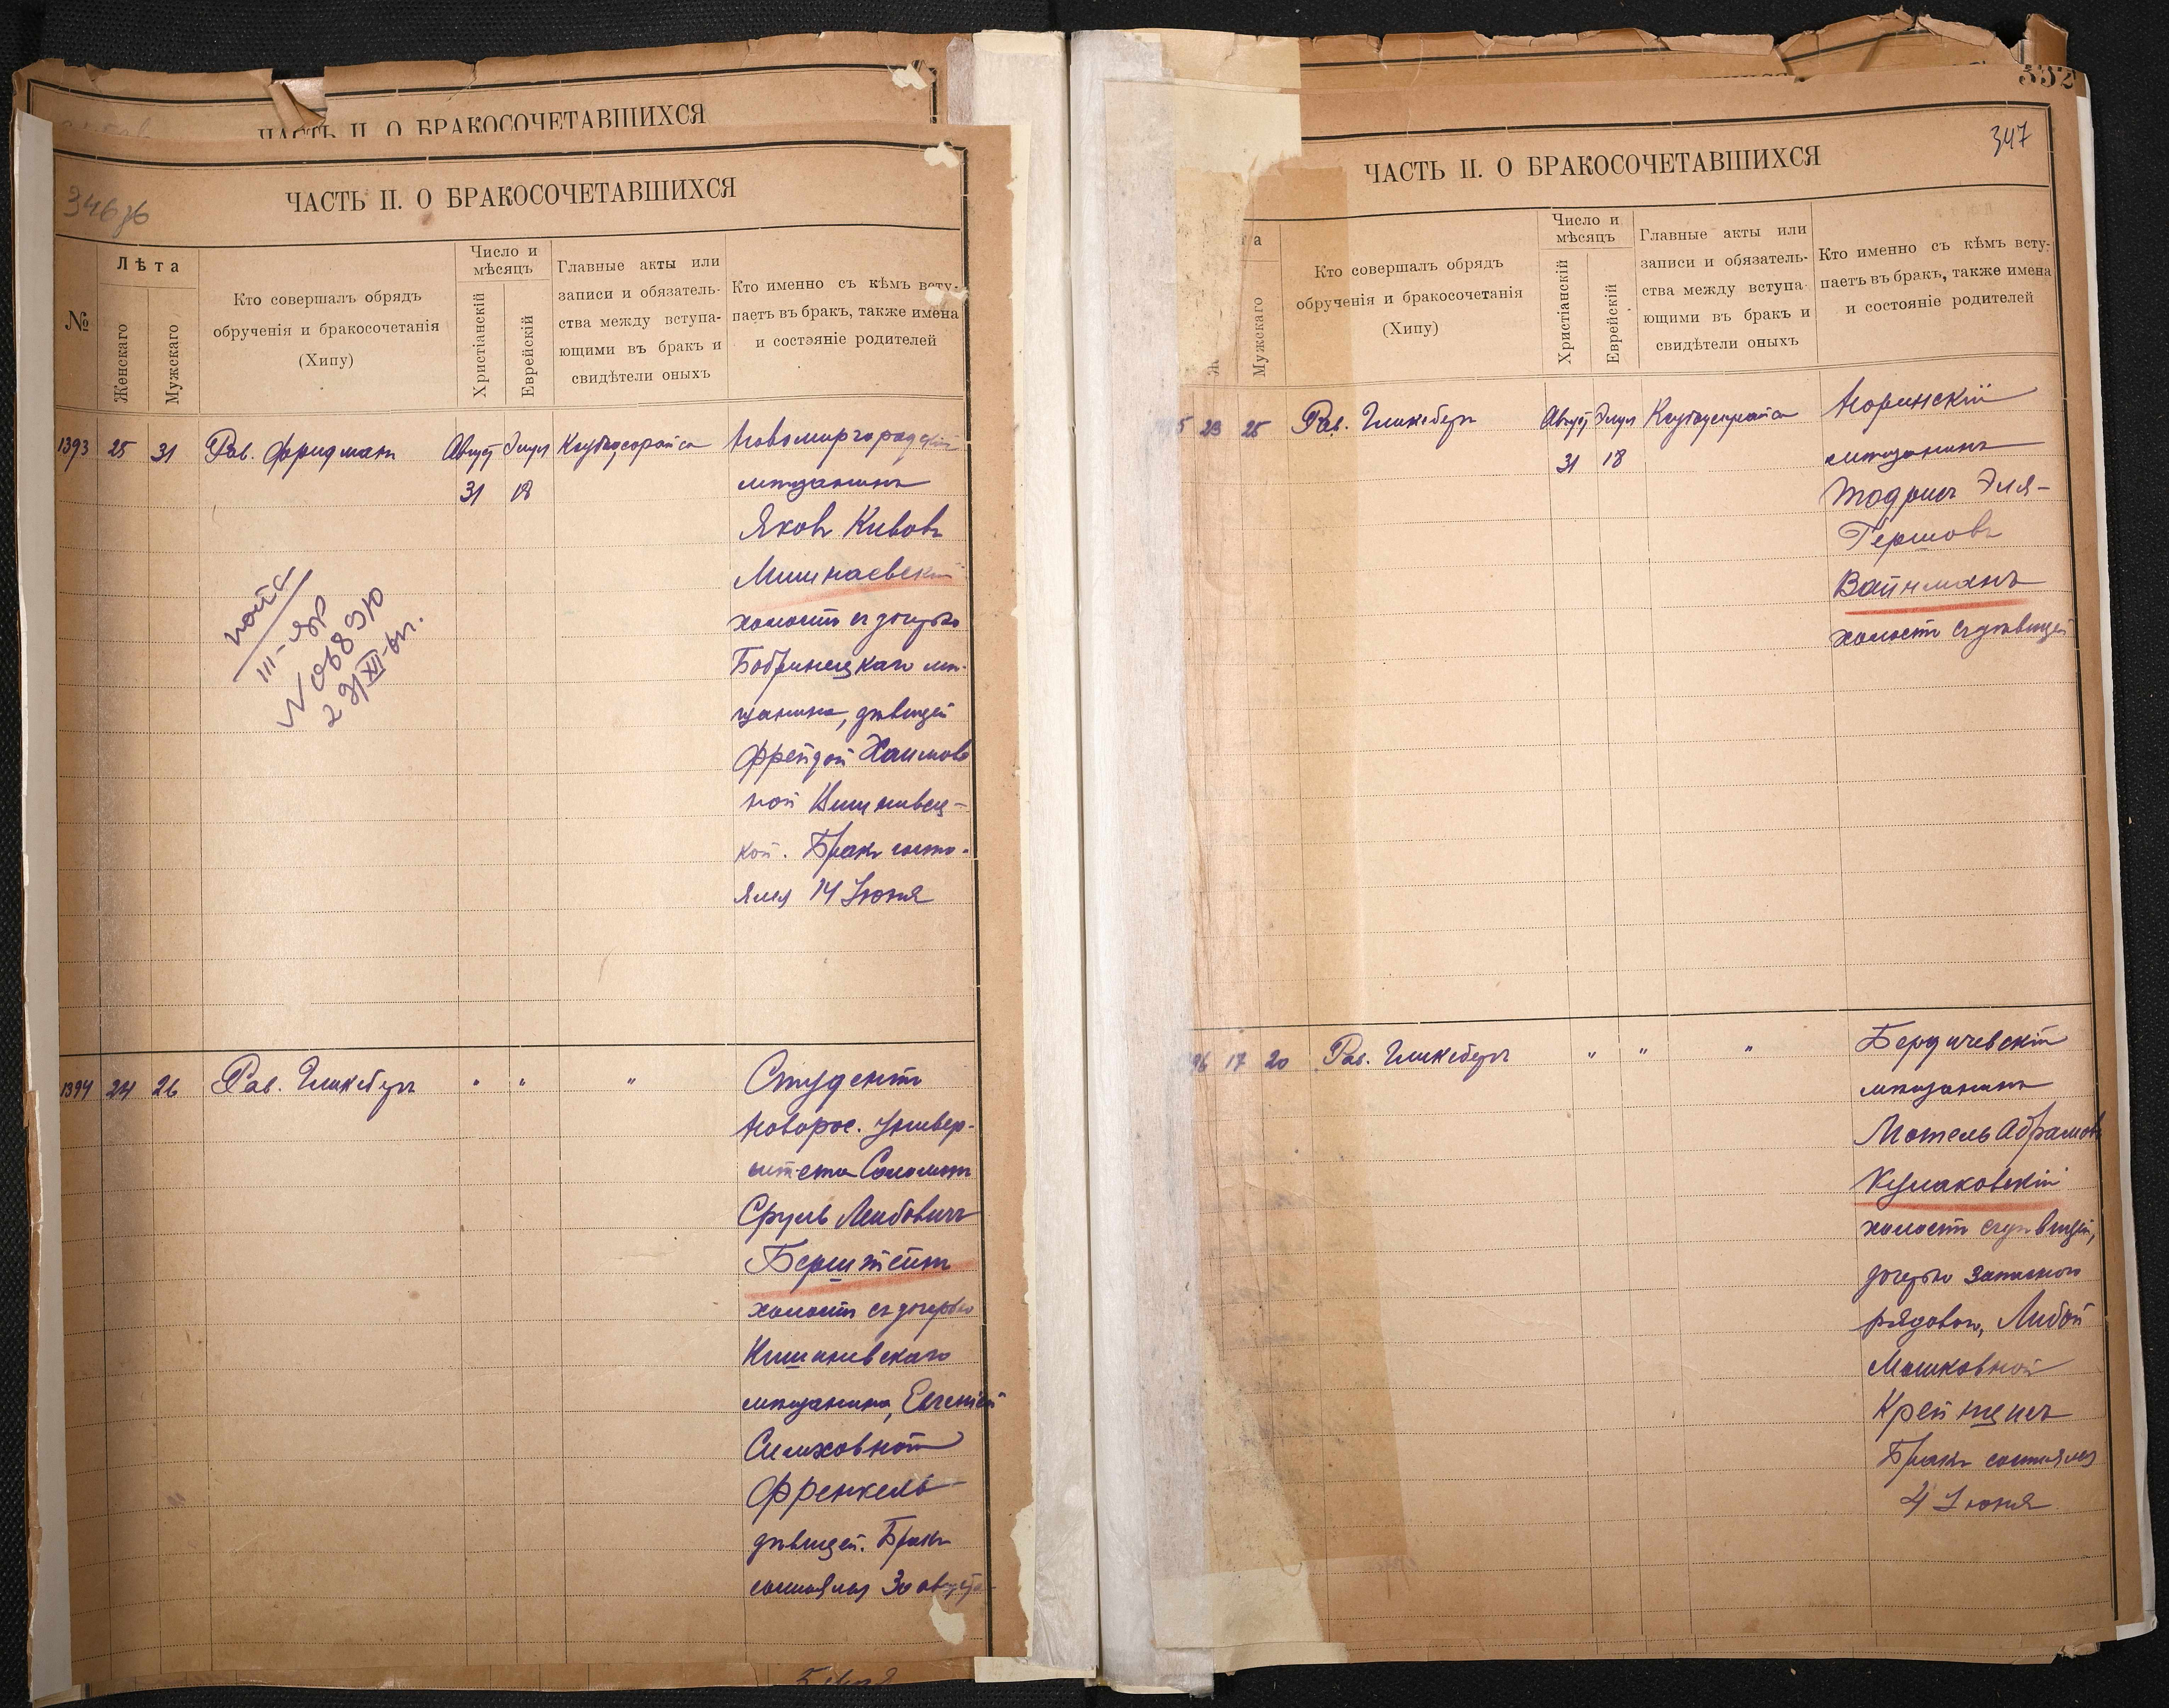 ЧАСТЬ II. О БРАКОСОЧЕТАВШИХСЯ
ЧАСТЬ II. О БРАКОСОЧЕТАВШИХСЯ
346
№
Лѣта
Женскаго
Мужскаго
Кто совершалъ обрядъ
обрученія и бракосочетанія
(Хипу)
Число и
мѣсяцъ
Христіанскій
Еврейскій
Главные акты или
записи и обязатель-
ства между вступа-
ющими въ бракъ и
свидѣтели оныхъ
Кто именно съ кѣмъ всту-
паетъ въ бракъ, также имена
и состояніе родителей
1393 25 31 Рав. Фридманъ Август Элул
31 18
Новомиргородскій
мѣщанинъ
Яковъ Кивовъ
холостъ съ дочерью
Бобринецкаго мѣ-
щанина, дѣвицей
Фрейдой Хаимов
ной
кой. Бракъ состо-
ялся 14 Іюня
III-
1394 24 26 Рав. Гликсбергъ " " "
Студентъ
Новорос. Универ-
ситета Соломонъ
Сруль Лейбовичъ
Берштейнъ
холостъ съ дочерью
Кишиневскаго
мѣщанина, Евгеніей
Симховной
Френкель
дѣвицей. Бракъ
состоялся 30 августа
332
347
ЧАСТЬ II. О БРАКОСОЧЕТАВШИХСЯ
а
Ж
Мужскаго
Кто совершалъ обрядъ
обрученія и бракосочетанія
(Хипу)
Число и
мѣсяцъ
Христіанскій
Еврейскій
Главные акты или
записи и обязатель-
ства между вступа-
ющими въ бракъ и
свидѣтели оныхъ
Кто именно съ кѣмъ всту-
паетъ въ бракъ, также имена
и состояніе родителей
5 23 25 Рав. Гликсбергъ Август Элул
31 18
Норинскій
мѣщанинъ
Тодрисъ Эля-
Гершовъ
Вайнманъ
холостъ съ дѣвицей
96 17 20 Рав. Гликсбергъ " " "
Бердичевскій
мѣщанинъ
Мотель Абрамовъ
Кулаковскій
холостъ съ дѣвицей,
дочерью запасного
рядового, Либой
Мошковной
Крейнцисъ
Бракъ состоялся
4 Іюня